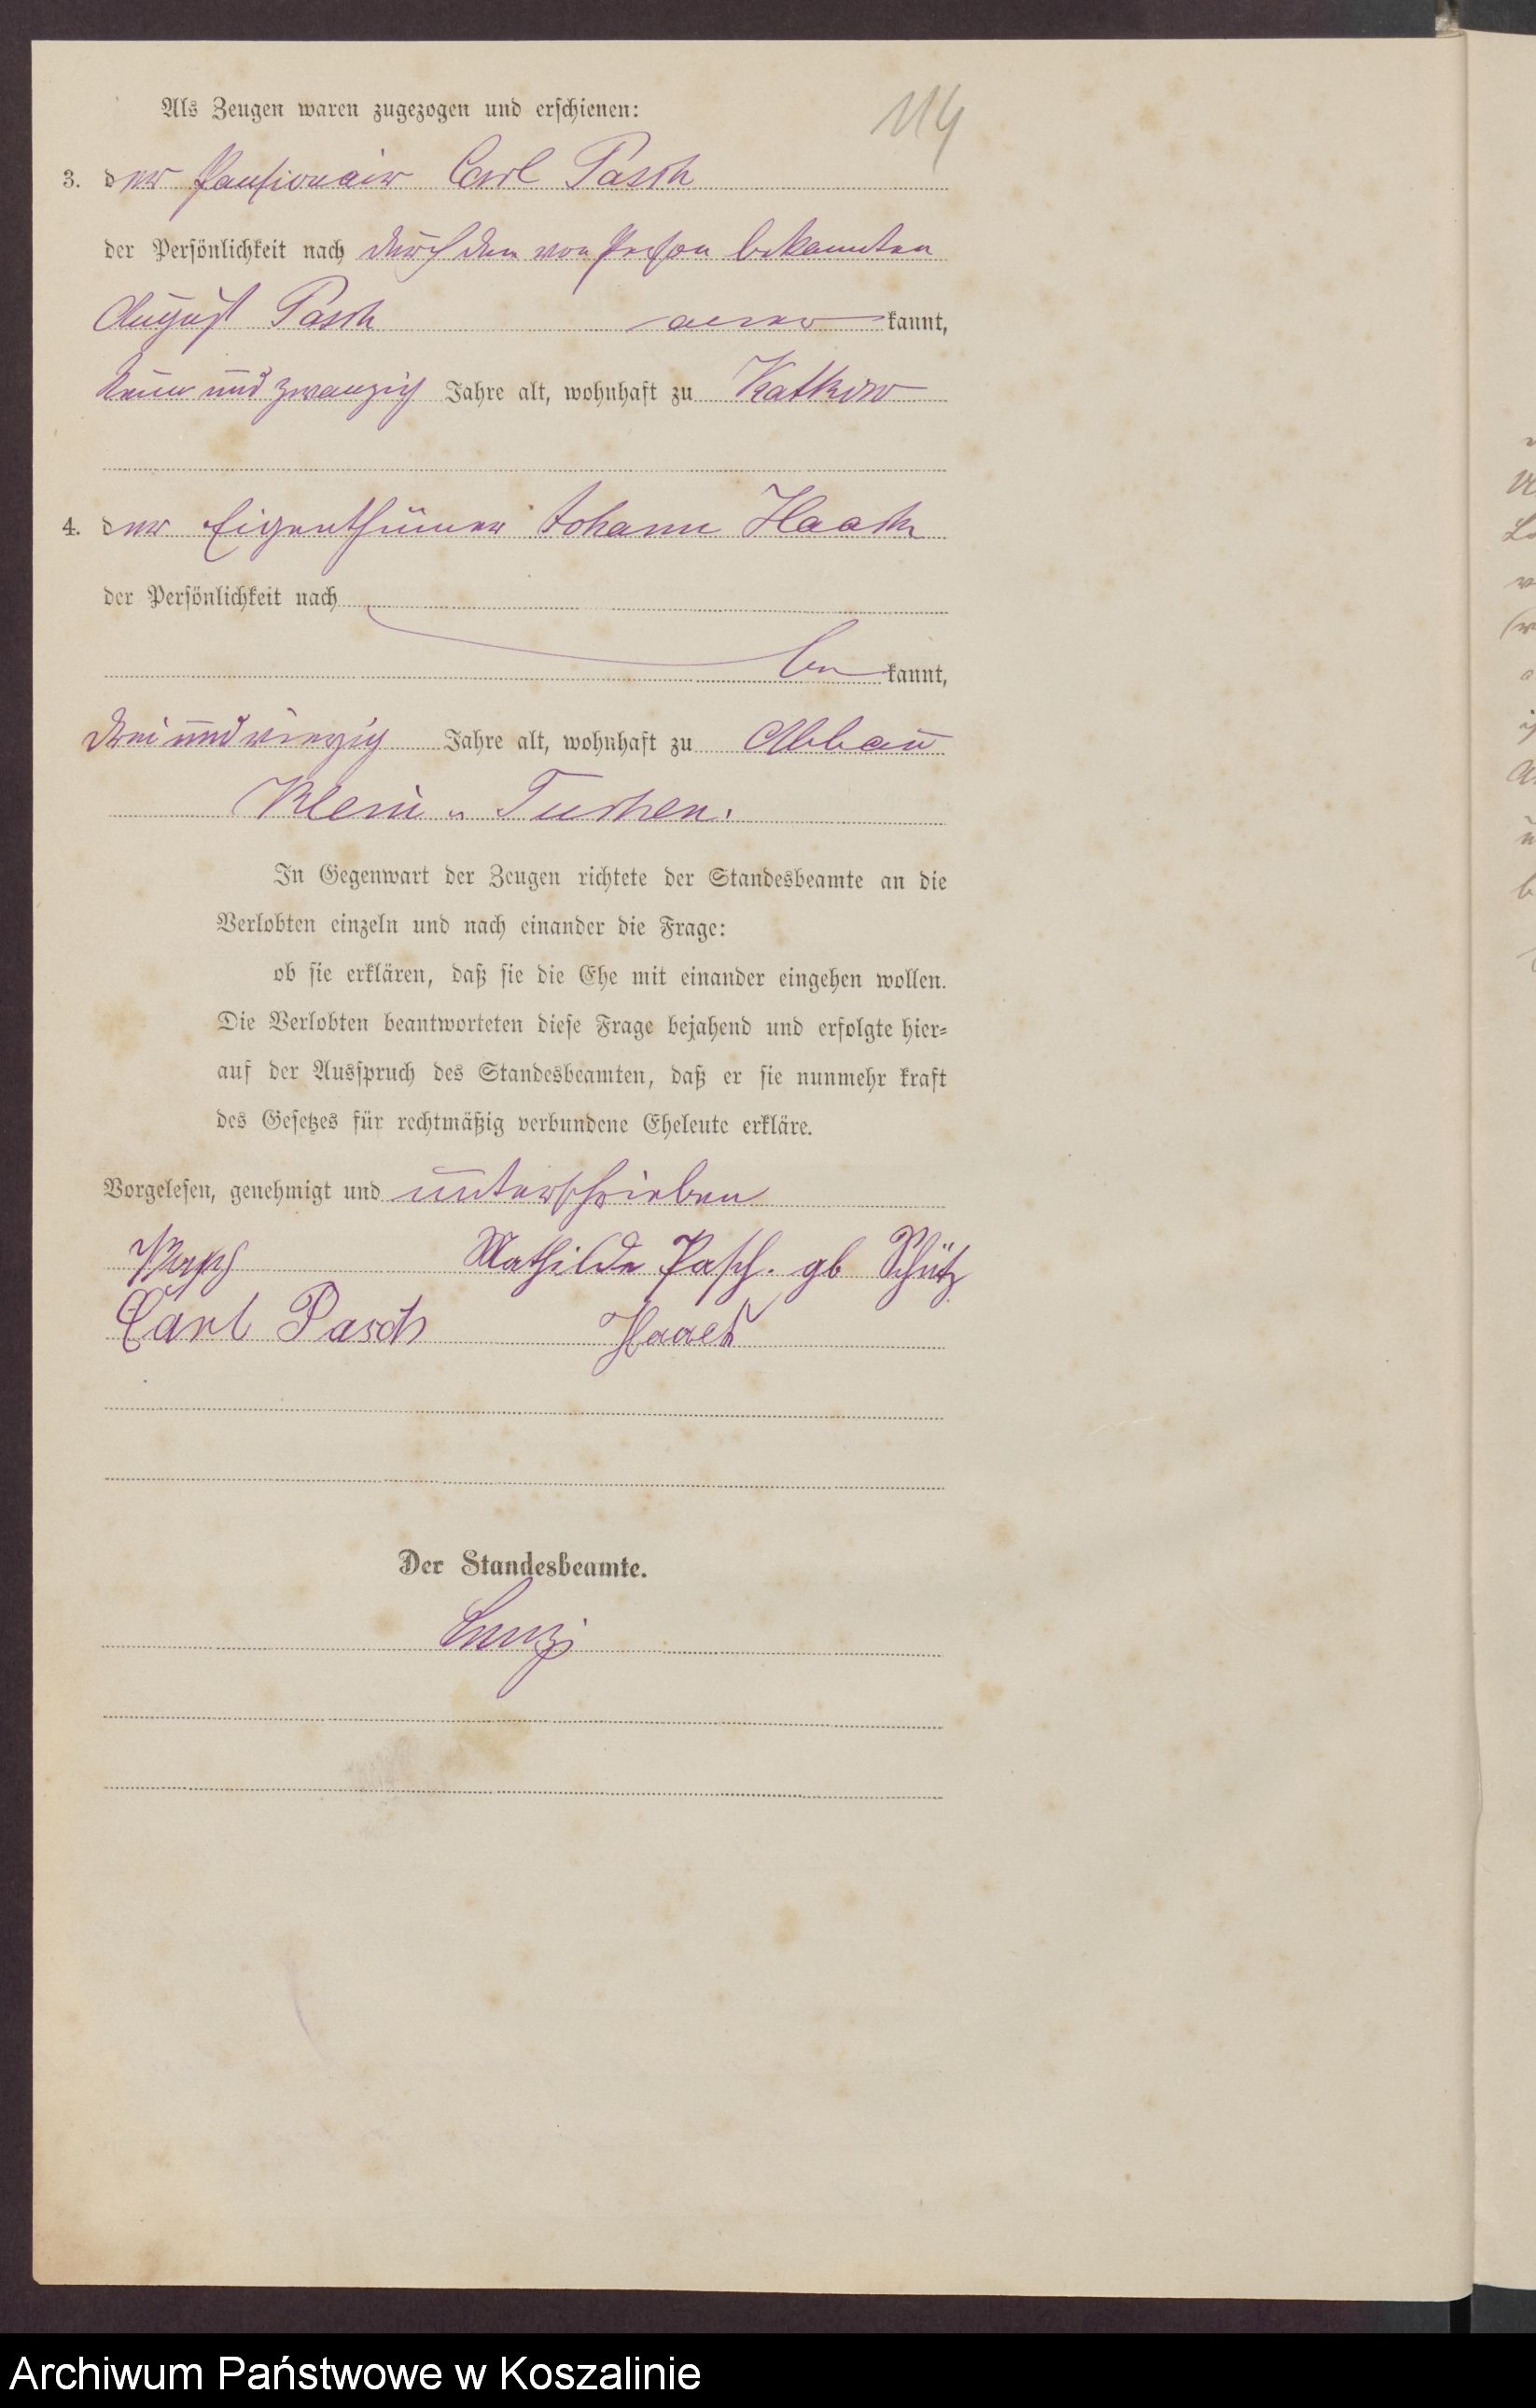 114
Als Zeugen waren zugezogen und erschienen:
3. der Pensionair Carl Pasch
der Persönlichkeit nach durch den von Person bekannten
August Pasch aner kannt,
neun und zwanzig Jahre alt, wohnhaft zu Katkow
4. der Eigenthümer Johann Haack
der Persönlichkeit nach
be kannt,
drei und vierzig Jahre alt, wohnhaft zu Abbau
Klein - Tuchen.
In Gegenwart der Zeugen richtete der Standesbeamte an die
Verlobten einzeln und nach einander die Frage:
ob sie erklären, daß sie die Ehe mit einander eingehen wollen.
Die Verlobten beantworteten diese Frage bejahend und erfolgte hier-
auf der Ausspruch des Standesbeamten, daß er sie nunmehr kraft
des Gesetzes für rechtmäßig verbundene Eheleute erkläre.
Vorgelesen, genehmigt und unterschrieben
Pasch Mathilde Pasch. gb Schütz
Carl Pasch Haack
Der Standesbeamte.
Archiwum Państwowe w Koszalinie